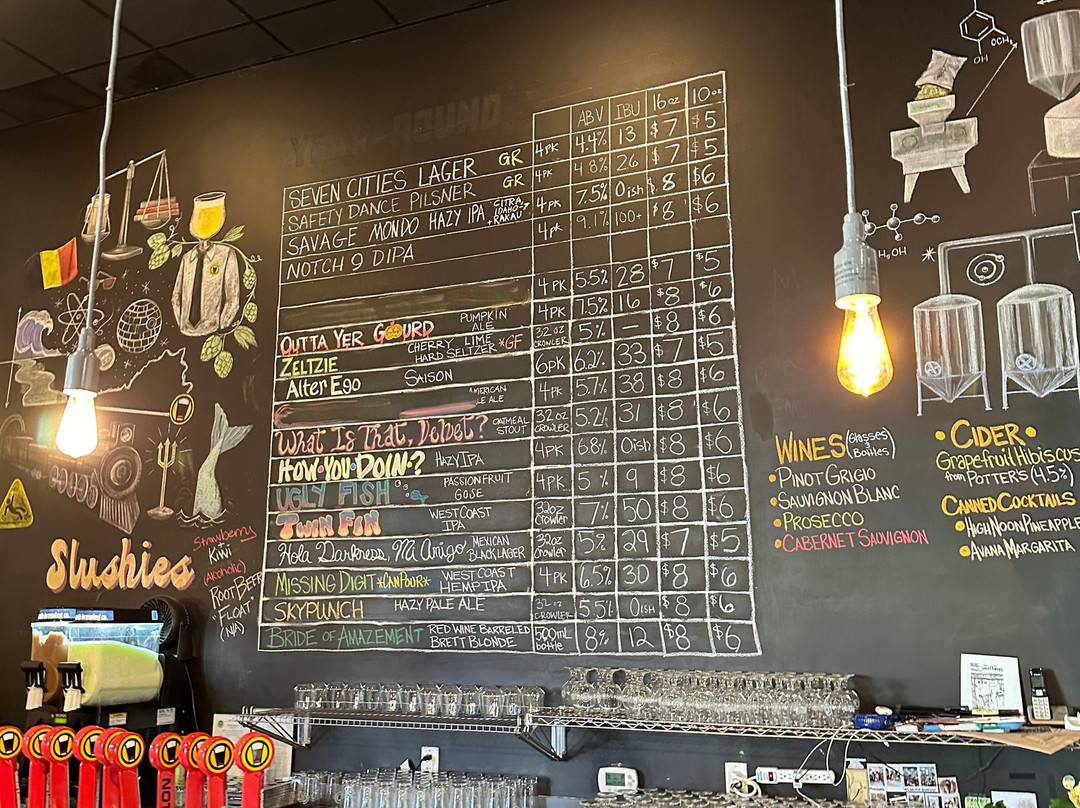 YEAR-ROUND
ABV IBU 16oz 10oz
SEVEN CITIES LAGER GR 4PK 4.4% 13 $7 $5
SAFETY DANCE PILSNER GR 4PK 4.8% 26 $7 $5
SAVAGE MONDO HAZY IPA CITRA, IDAHO-7 +RAKAU 4pk 7.5% 0ish $8 $6
NOTCH 9 DIPA 4pk 9.1% 100+ $8 $6
4PK 5.5% 28 $7 $5
OUTTA YER GOURD PUMPKIN ALE 4PK 7.5% 16 $8 $6
ZELTZIE CHERRY LIME HARD SELTZER *GF 32oz CROWLER 5% — $8 $6
Alter Ego SAISON 6pk 6.2% 33 $7 $5
AMERICAN ALE 4PK 5.7% 38 $8 $6
What Is That, Velvet? OATMEAL STOUT 32oz CROWLER 5.2% 31 $8 $6
HOW•YOU•DOIN•? HAZY IPA 4PK 6.8% 0ish $8 $6
UGLY FISH PASSIONFRUIT GOSE 4PK 5% 9 $8 $6
TWIN FIN WEST COAST IPA 32oz Crowler 7% 50 $8 $6
Hola Darkness, Mi Amigo MEXICAN BLACK LAGER 32oz Crowler 5% 29 $7 $5
MISSING DIGIT *CAN POUR* WEST COAST HEMP IPA 4PK 6.5% 30 $8 $6
SKYPUNCH HAZY PALE ALE 32oz CROWLER 5.5% 0ish $8 $6
BRIDE OF AMAZEMENT RED WINE BARRELED BRETT BLONDE 500mL bottle 8% 12 $8 $6
Slushies
Strawberry
Kiwi
(Alcoholic)
ROOT BEER
"FLOAT"
(N/A)
WINES (Glasses & Bottles)
•PINOT GRIGIO
•SAUVIGNON BLANC
•PROSECCO
•CABERNET SAUVIGNON
•CIDER•
Grapefruit Hibiscus
from POTTER'S (4.5%)
CANNED COCKTAILS
•HIGH NOON PINEAPPLE
•AVANA MARGARITA
OCH₃
OH